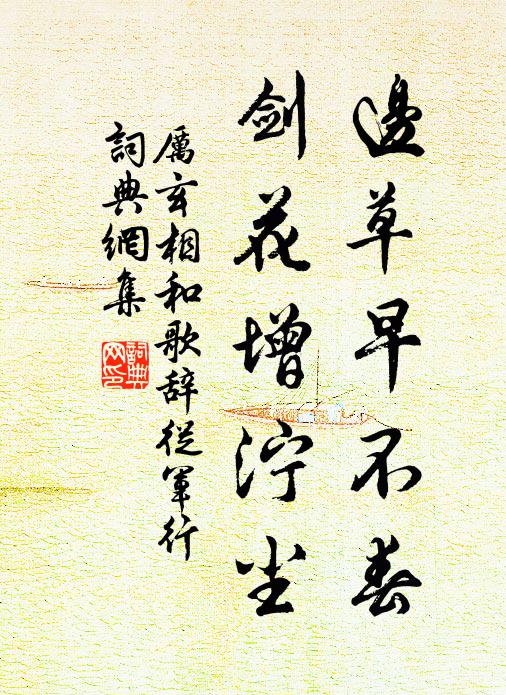 邊草早不春
剑花增泞尘
厲玄相和歌辞從軍行
詞典網集
詞典網印